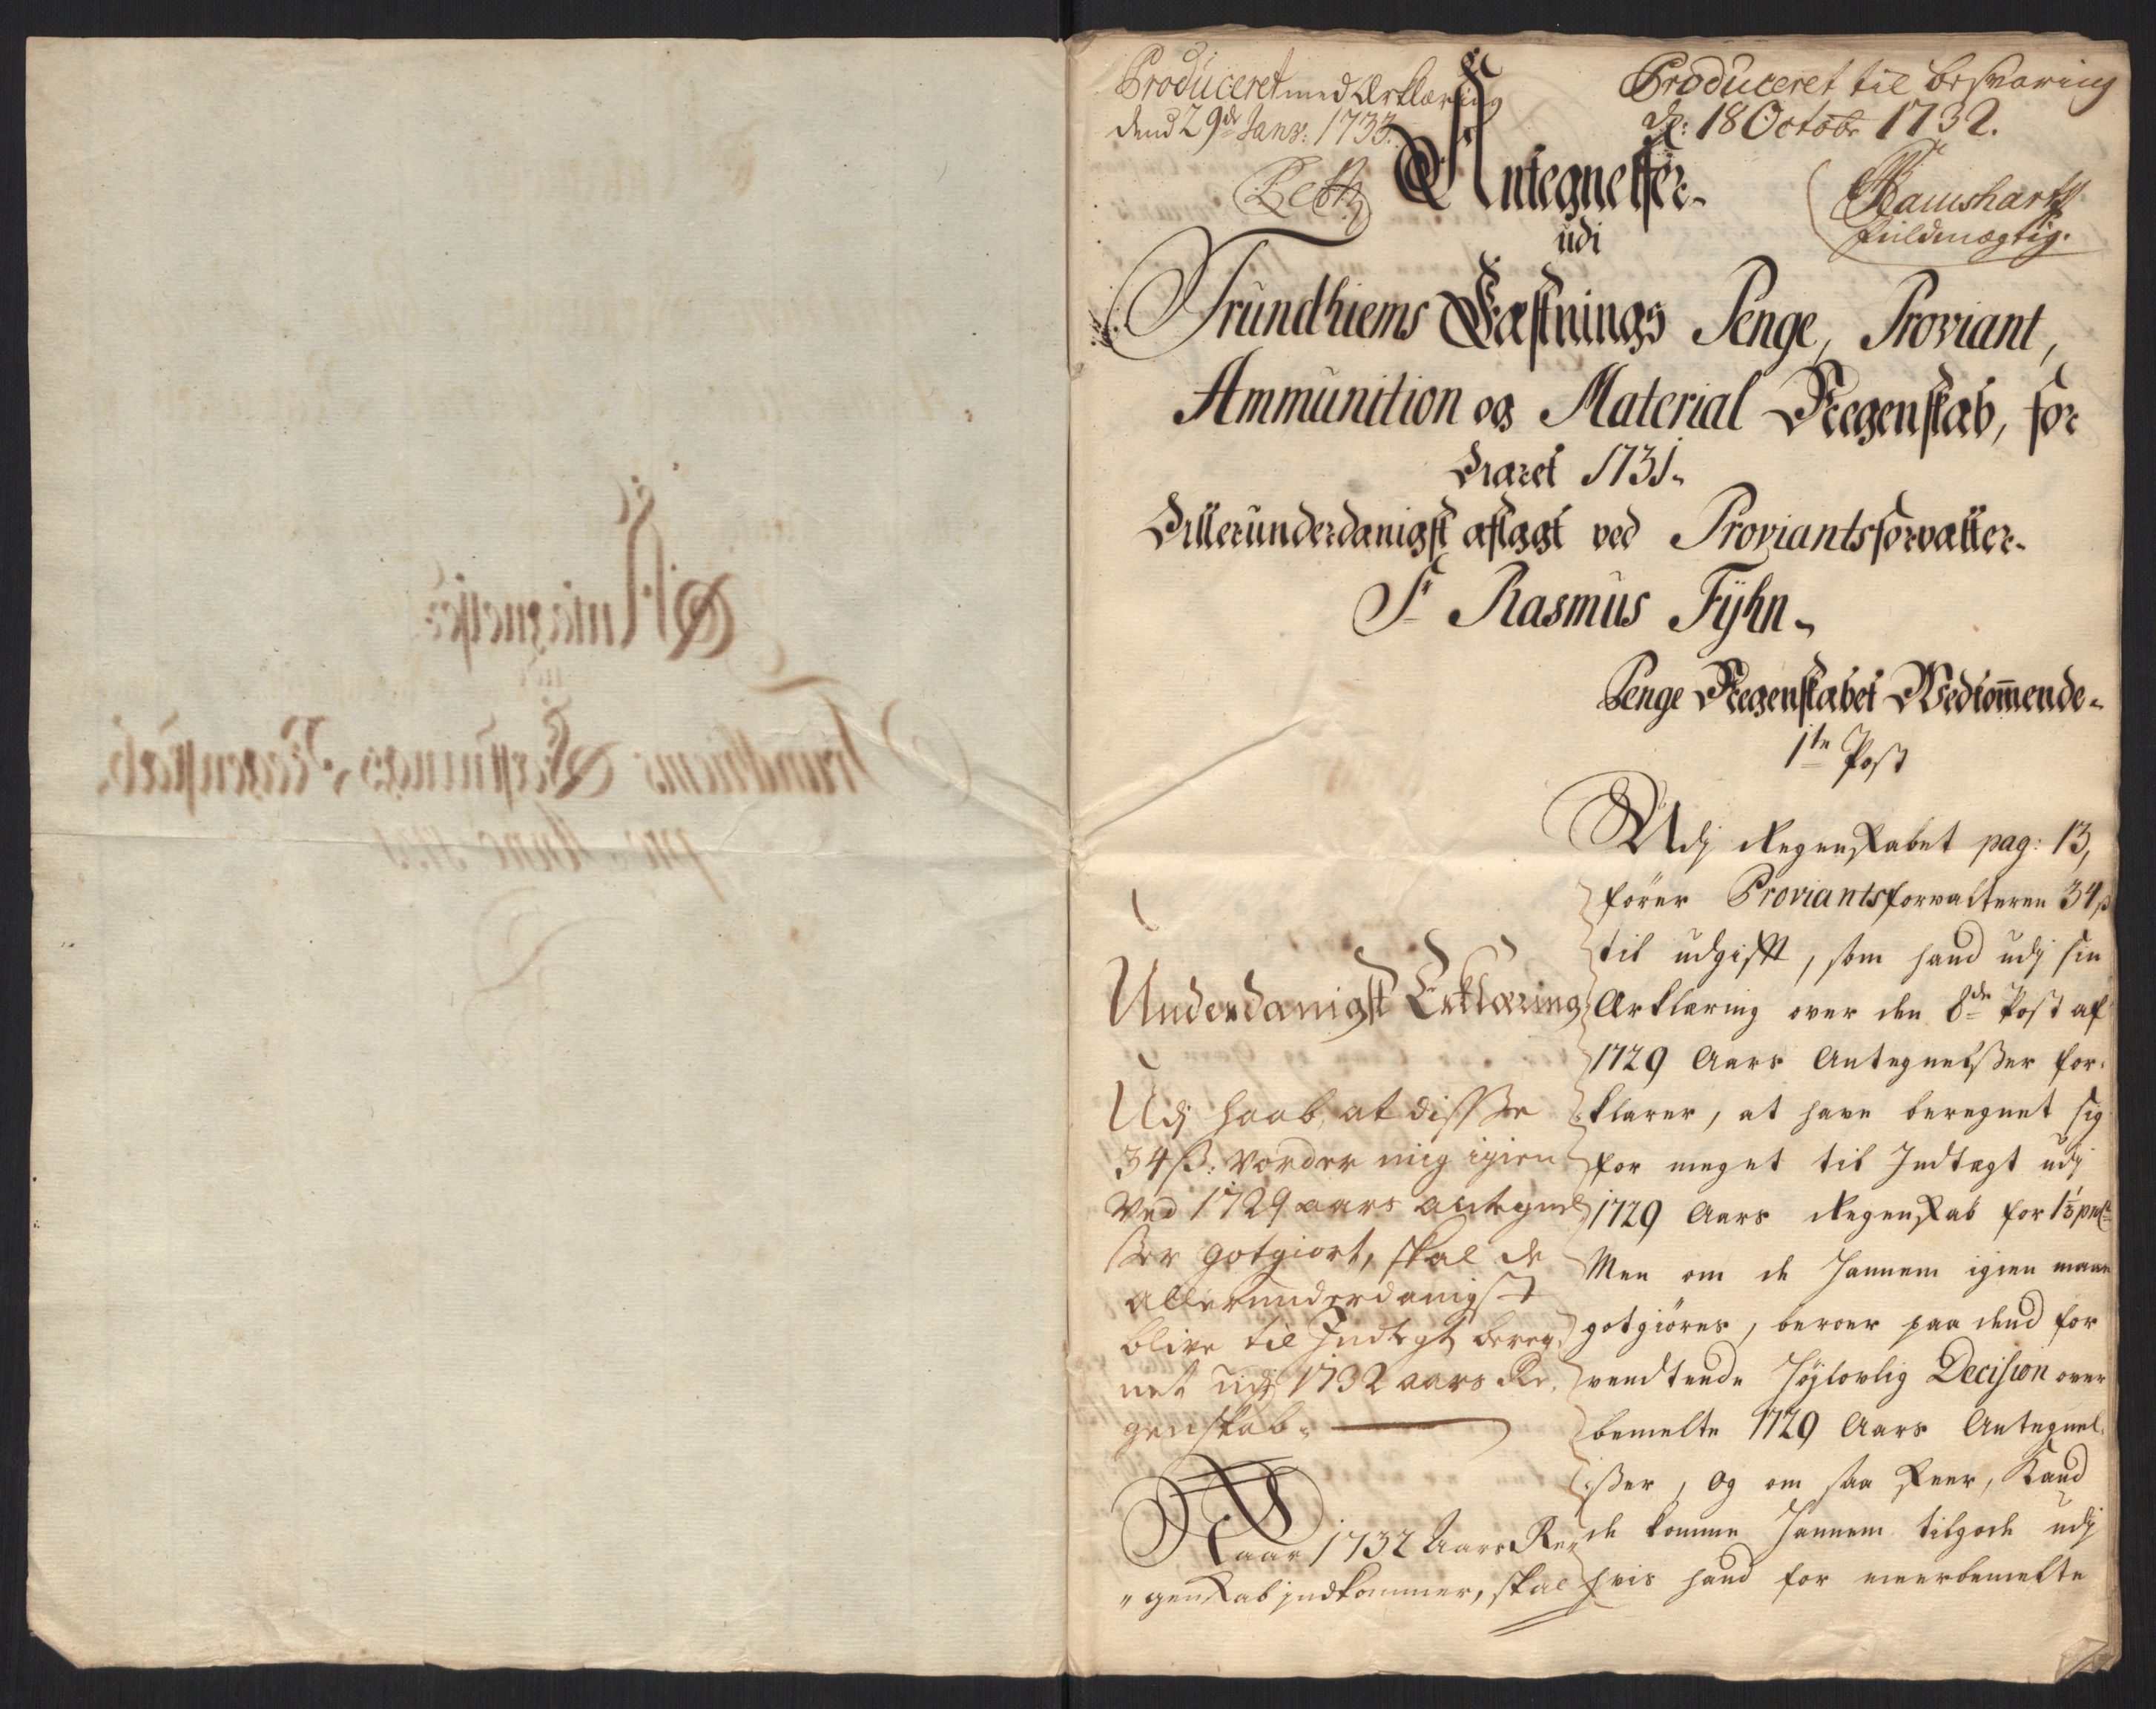 Produceret med Erklæring
dend 29de Janv: 1733.
Produceret til besvaring
d: 18 Octobr 1732.
fuldmægtig.
Antegnelser
udi
Trundhiems Fæstnings Penge, Proviant,
Ammunition og Material Regenskab, for
Aaret 1731.
Allerunderdanigst aflagt ved Proviantsforvalter
Sr Rasmus Fyhn
Penge Regenskabet Vedkommende
1te Post
Udj Regenskabet pag: 13,
fører Proviantsforvalteren 34 ß
til udgift, som hand udj sin
Erklæring over den 8de Post af
1729 Aars Antegnelsser for-
klarer, at have beregnet sig
for meget til Indtægt udj
1729 Aars Regenskab for 1⅓ pct
Men om de hannem igien maae
gotgiøres, beroer paa dend for
ventende Høylovlig Decision over
bemelte 1729 Aars Antegnel-
sser, og om saa skeer, kand
de komme hannem tilgode udj
hvis hand for meerbemelte
Underdanigst Erklæring
Udj haab, at dissse
34 ß: vorder mig igien
ved 1729 aars antegnel
sser gotgiort, skal de
allerunderdanigst
blive til Indtegt bereg-
net udj 1732 aars Re-
genskab.
Naar 1732 Aars Re-
genskab indkommer, skal
Antegnelser
udi
Trundhiems Fæstnings Regenskab,
pro Anno 1731